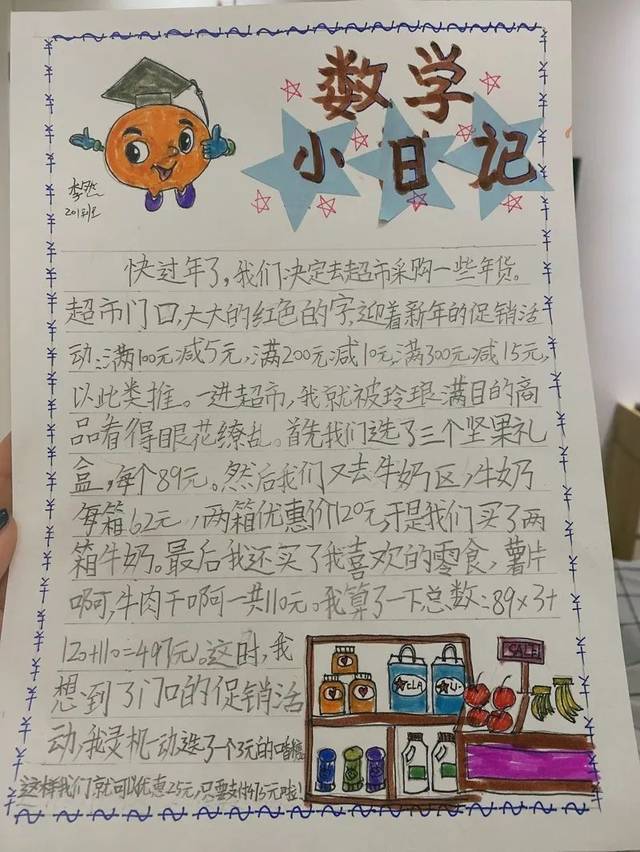 数学
小日记
快过年了,我们决定去超市采购一些年货。
超市门口,大大的红色的字,迎着新年的促销活
动:满100元减5元,满200元减10元,满300元减15元,
以此类推。一进超市,我就被玲琅满目的商
品看得眼花缭乱。首先我们选了三个坚果礼
盒,每个89元。然后我们又去牛奶区,牛奶
每箱62元,两箱优惠价120元,于是我们买了两
箱牛奶。最后我还买了我喜欢的零食,薯片
啊,牛肉干啊一共110元。我算了一下总数:89×3+
120+110=497(元)。这时,我
想到了门口的促销活
动,我灵机一动选了一个3元的
这样我们就可以优惠25元,只要支付475元啦!
SALE